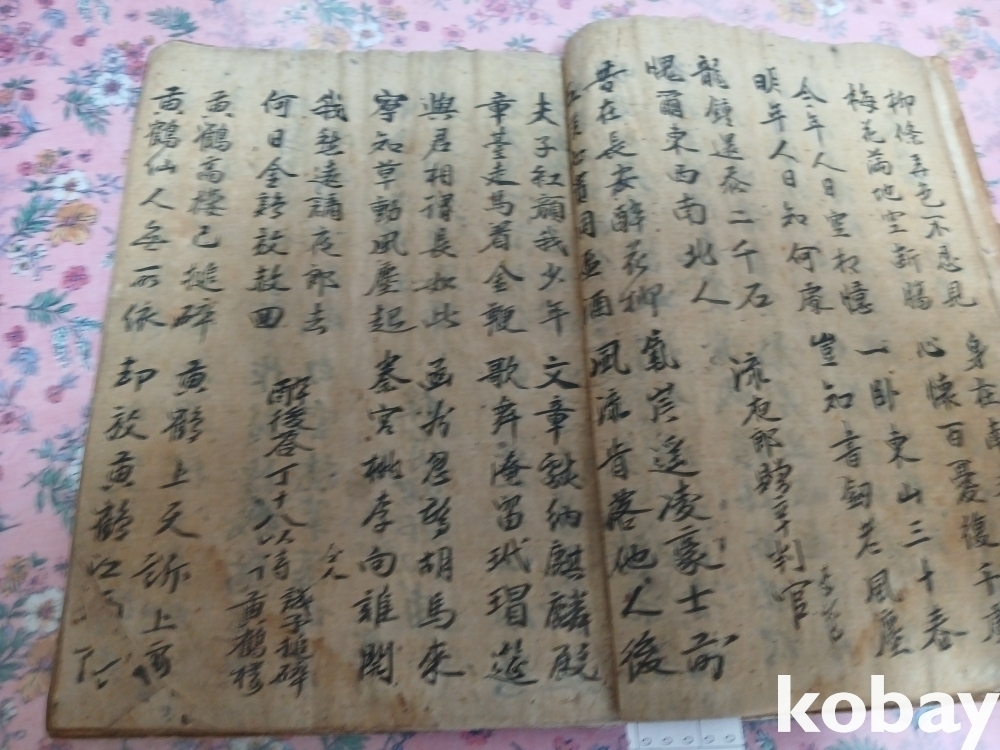 柳條弄色不忍見
梅花滿地空斷腸
身在
心懷百憂復千
今年人日空相憶
明年人日知何處
一臥東山三十春
豈知書劍老風塵
龍鍾還忝二千石
愧爾東西南北人
流夜郎贈辛判官
昔在長安醉花柳
同盃酒
氣岸遙凌豪士前
風流肯落他人後
夫子紅顏我少年
章臺走馬着金鞭
文章獻納麒麟殿
歌舞淹留玳瑁筵
與君相謂長如此
寧知草動風塵起
函谷忽驚胡馬來
秦宮桃李向誰開
我愁遠謫夜郎去
何日金雞放赦回
醉後答丁十八以詩
譏予搥碎
黃鶴樓
仝人
黃鶴高樓已搥碎
黃鶴仙人無所依
黃鶴上天訴上帝
却放黃鶴江
kobay